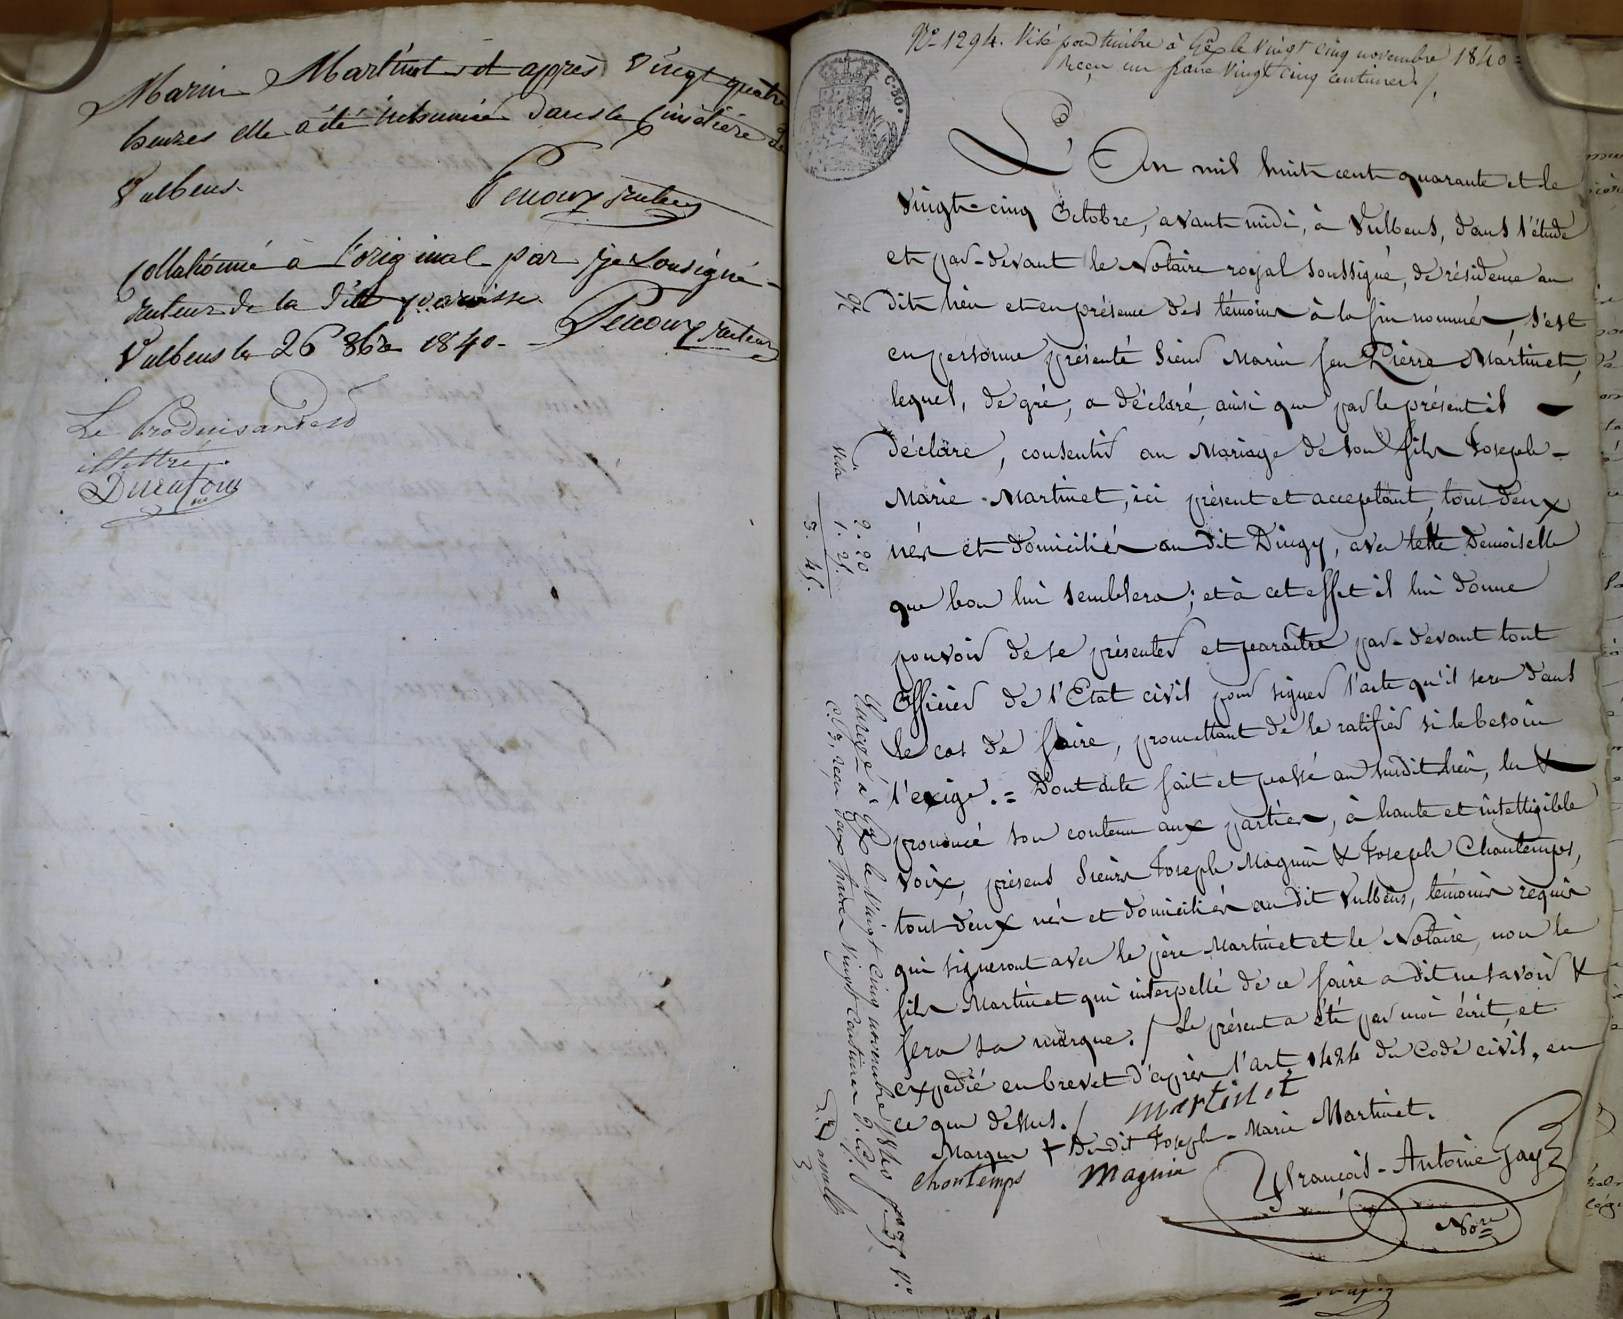 Marin Martinet et après vingt quatre
heures elle a été inhumée dans le cimetière de
Vulbens.
Penoux recteur
Collationné à l'original par je soussigné
recteur de la dite paroisse
Vulbens le 26 8bre 1840.
Penoux recteur
Le produisant est
illettré.
Ducafour
No 1294. Visé pour timbre à Gex le vingt cinq novembre 1840 =
Reçu un franc vingt cinq centimes /.
C. 80.
L'An mil huit cent quarante et le
vingt-cinq Octobre, avant midi, à Vulbens, dans l'étude
et par-devant le Notaire royal soussigné, de résidence au
dit lieu et en présence des témoins à la fin nommés, s'est
en personne présenté Sieur Marin feu Pierre Martinet,
lequel, de gré, a déclaré, ainsi que par le présent il
déclare, consentir au Mariage de son fils Joseph-
Marie Martinet, ici présent et acceptant, tous deux
nés et domiciliés au dit Dingy, avec telle Demoiselle
que bon lui semblera; et à cet effet il lui donne
pouvoir de se présenter et paraître par-devant tout
Officier de l'Etat civil pour signer l'acte qu'il sera dans
le cas de faire, promettant de le ratifier si le besoin
l'exige. = Dont acte fait et passé au susdit lieu, lu &
prononcé son contenu aux parties, à haute et intelligible
voix, présens Sieurs Joseph Magnin & Joseph Chautemps,
tous deux nés et domiciliés au dit Vulbens, témoins requis
qui signeront avec le père Martinet et le Notaire, non le
fils Martinet qui interpellé de ce faire a dit ne savoir &
fera sa marque. / Le présent a été par moi écrit, et
expédié en brevet d'après l'art. 1424 du Code civil, en
ce que dessus. /
martinet
Marque + Du dit Joseph-Marie Martinet.
chautemps magnin
François-Antoine Gay
Nore
Visa
2. 20
1. 25.
3. 45.
Enregé à Gex le vingt cinq novembre 1840 fo 35 Vo
c. 3, reçu deux francs vingt centimes